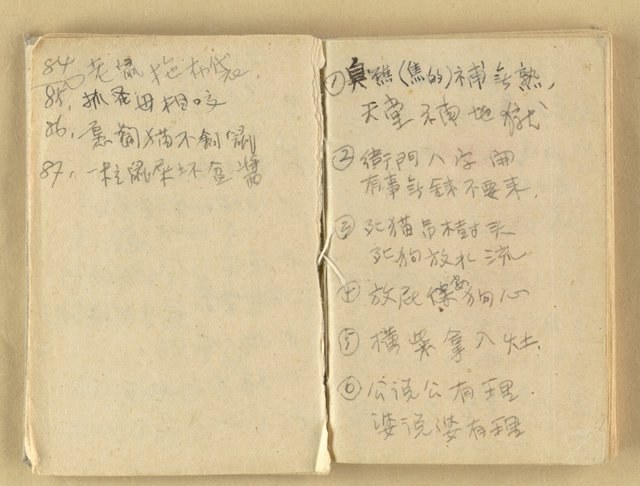 84, 老鼠拖布袋.
85, 抓蚤母相咬
86, 惡
猫不
鼠
87, 一粒鼠屎坏
醬
① 臭
(焦的)補
熟,
天堂補地獄
② 衙門八字開
有事無錢不要來.
③ 死猫吊樹头
死狗放水流
④ 放屁
狗心
⑤ 橫柴拿入灶.
⑥ 公说公有理.
婆说婆有理